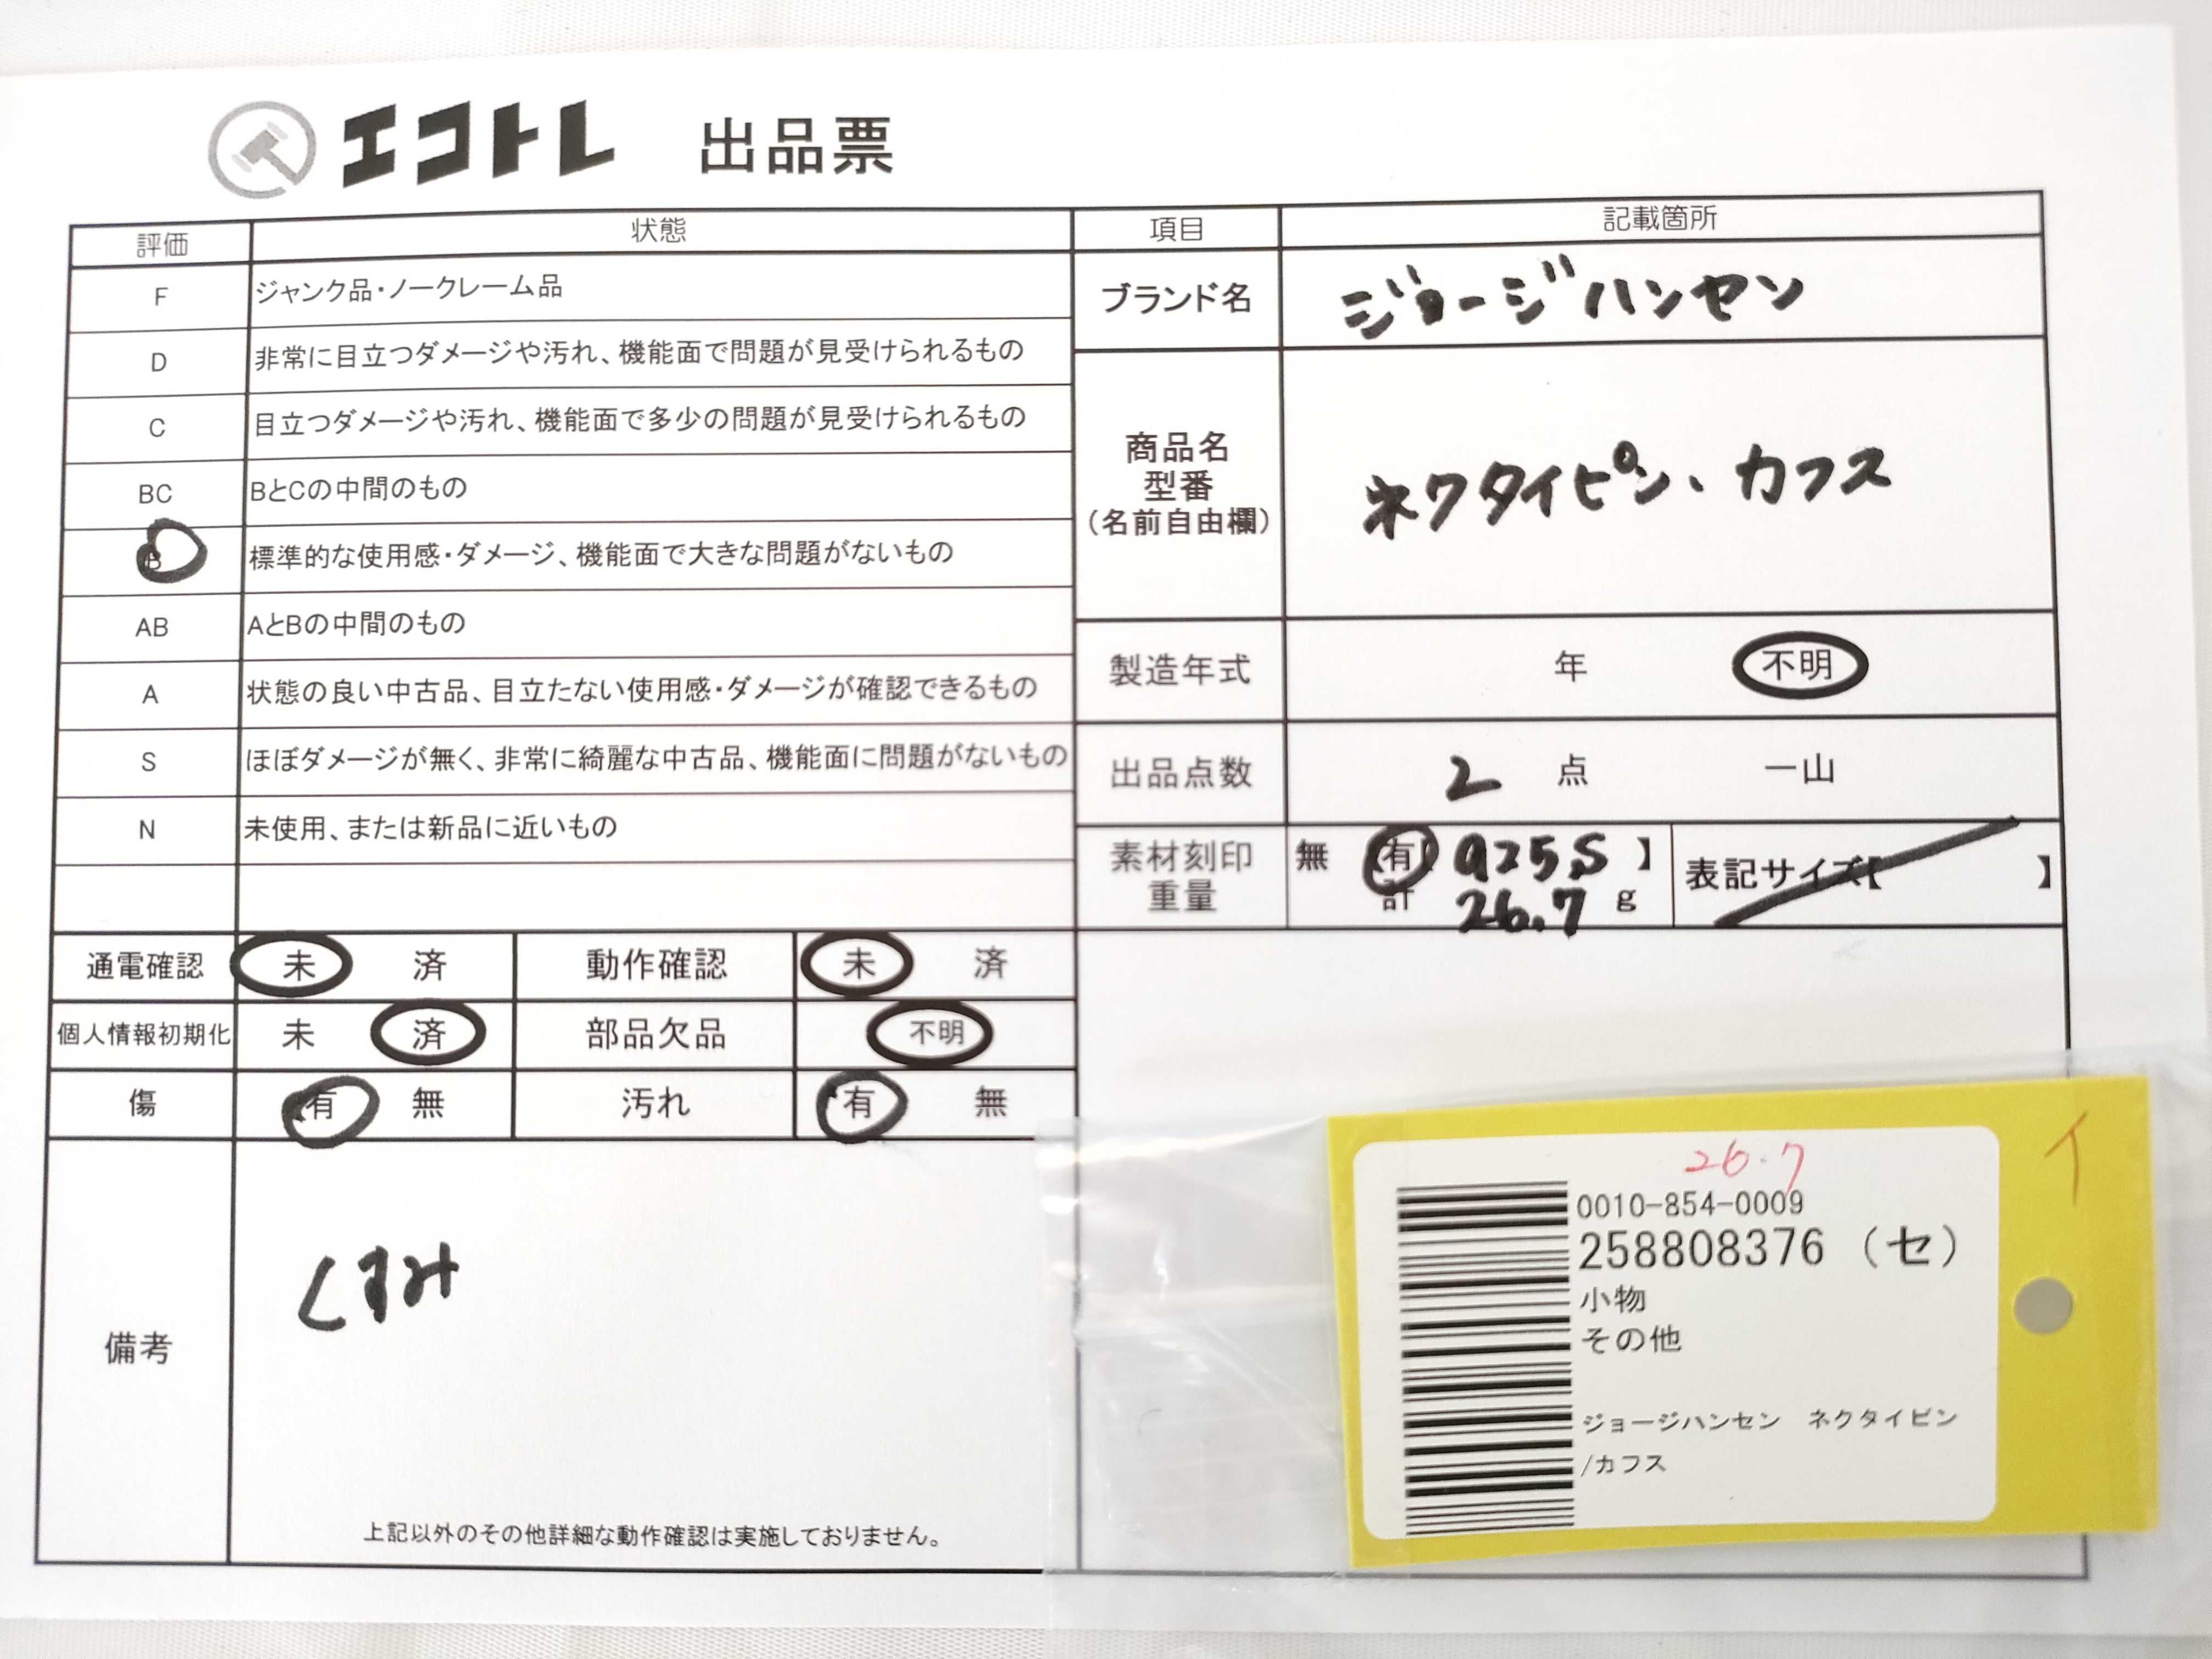 エコトレ 出品票
評価 状態 項目 記載箇所
F ジャンク品・ノークレーム品
D 非常に目立つダメージや汚れ、機能面で問題が見受けられるもの
C 目立つダメージや汚れ、機能面で多少の問題が見受けられるもの
BC BとCの中間のもの
B 標準的な使用感・ダメージ、機能面で大きな問題がないもの
AB AとBの中間のもの
A 状態の良い中古品、目立たない使用感・ダメージが確認できるもの
S ほぼダメージが無く、非常に綺麗な中古品、機能面に問題がないもの
N 未使用、または新品に近いもの
ブランド名 ジョージハンセン
商品名
型番
(名前自由欄)
ネクタイピン、カフス
製造年式 年 不明
出品点数 2 点 一山
素材刻印
重量
無 有【 925,S 】
計 26.7 g
表記サイズ【 】
通電確認 未 済 動作確認 未 済
個人情報初期化 未 済 部品欠品 不明
傷 有 無 汚れ 有 無
備考
くすみ
上記以外のその他詳細な動作確認は実施しておりません。
26.7
イ
0010-854-0009
258808376 (セ)
小物
その他
ジョージハンセン ネクタイピン
/カフス